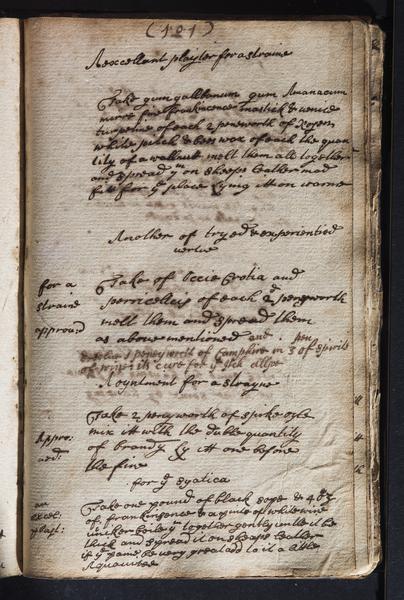 (121)
A excellant playster for a straine
Take gum gallbanum gum Amanacum
mirre fine frankincence mastick & venice
turpetine of each 2 penworth of Rosen
white pitch & bees wax of each the quan
tity of a wallnut melt them all together
and spread ym on sheeps Leather mad
fitt for ye place Lying itt on warme
Another of tryed & experientied
vertue
for a
straine
approud
Take of Occie Crotia and
perricellus of each 2 penyworth
melt them and spread them
as above mentioned and
peny worth of Camphire in 3 of spirits
of
A oyntment for a strayne
Appro:
ued:
Take 2 penyworth of spike oyle
mix itt with the duble quantity
of brandy by itt one before
the fire
for ye syatica
an
excel:
playst:
Take one pound of black sope & 4 oz
of frankinsence & a pinte of white wine
viniker boile ym together gently untill it be
thick and spread it on sheeps Leather
if ye paine be very great add to it a little
Aquavitee